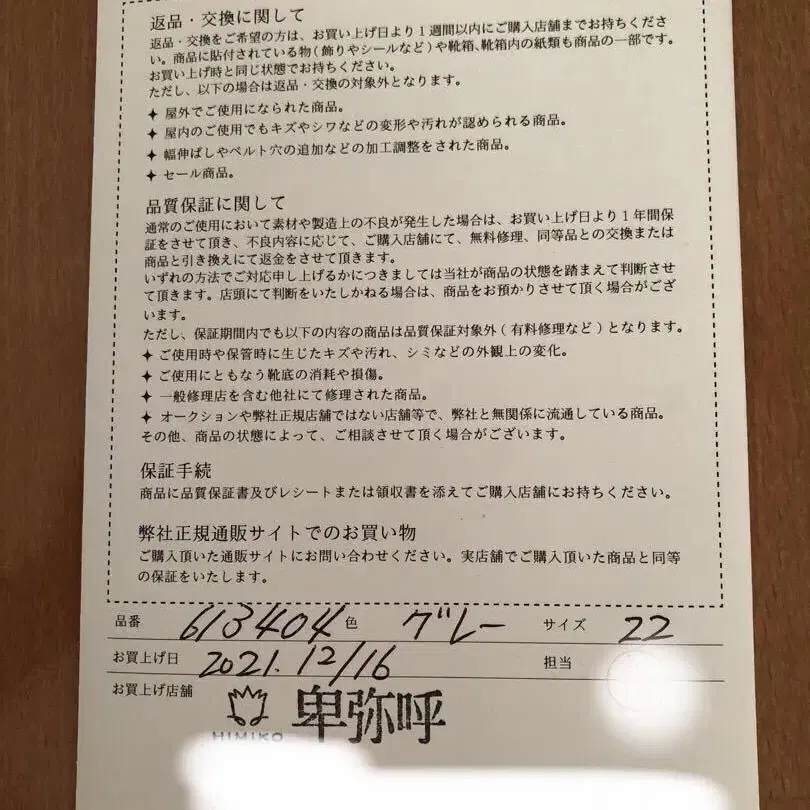 返品・交換に関して
返品・交換をご希望の方は、お買い上げ日より1週間以内にご購入店舗までお持ちくださ
い。商品に貼付されている物(飾りやシールなど)や靴箱、靴箱内の紙類も商品の一部です。
お買い上げ時と同じ状態でお持ちください。
ただし、以下の場合は返品・交換の対象外となります。
✦ 屋外でご使用になられた商品。
✦ 屋内のご使用でもキズやシワなどの変形や汚れが認められる商品。
✦ 幅伸ばしやベルト穴の追加などの加工調整をされた商品。
✦ セール商品。
品質保証に関して
通常のご使用において素材や製造上の不良が発生した場合は、お買い上げ日より1年間保
証をさせて頂き、不良内容に応じて、ご購入店舗にて、無料修理、同等品との交換または
商品と引き換えにて返金をさせて頂きます。
いずれの方法でご対応申し上げるかにつきましては当社が商品の状態を踏まえて判断させ
て頂きます。店頭にて判断をいたしかねる場合は、商品をお預かりさせて頂く場合がござ
います。
ただし、保証期間内でも以下の内容の商品は品質保証対象外(有料修理など)となります。
✦ ご使用時や保管時に生じたキズや汚れ、シミなどの外観上の変化。
✦ ご使用にともなう靴底の消耗や損傷。
✦ 一般修理店を含む他社にて修理された商品。
✦ オークションや弊社正規店舗ではない店舗等で、弊社と無関係に流通している商品。
その他、商品の状態によって、ご相談させて頂く場合がございます。
保証手続
商品に品質保証書及びレシートまたは領収書を添えてご購入店舗にお持ちください。
弊社正規通販サイトでのお買い物
ご購入頂いた通販サイトにお問い合わせください。実店舗でご購入頂いた商品と同等
の保証をいたします。
品番 613404 色 グレー サイズ 22
お買上げ日 2021.12/16 担当
お買上げ店舗 HIMIKO 卑弥呼